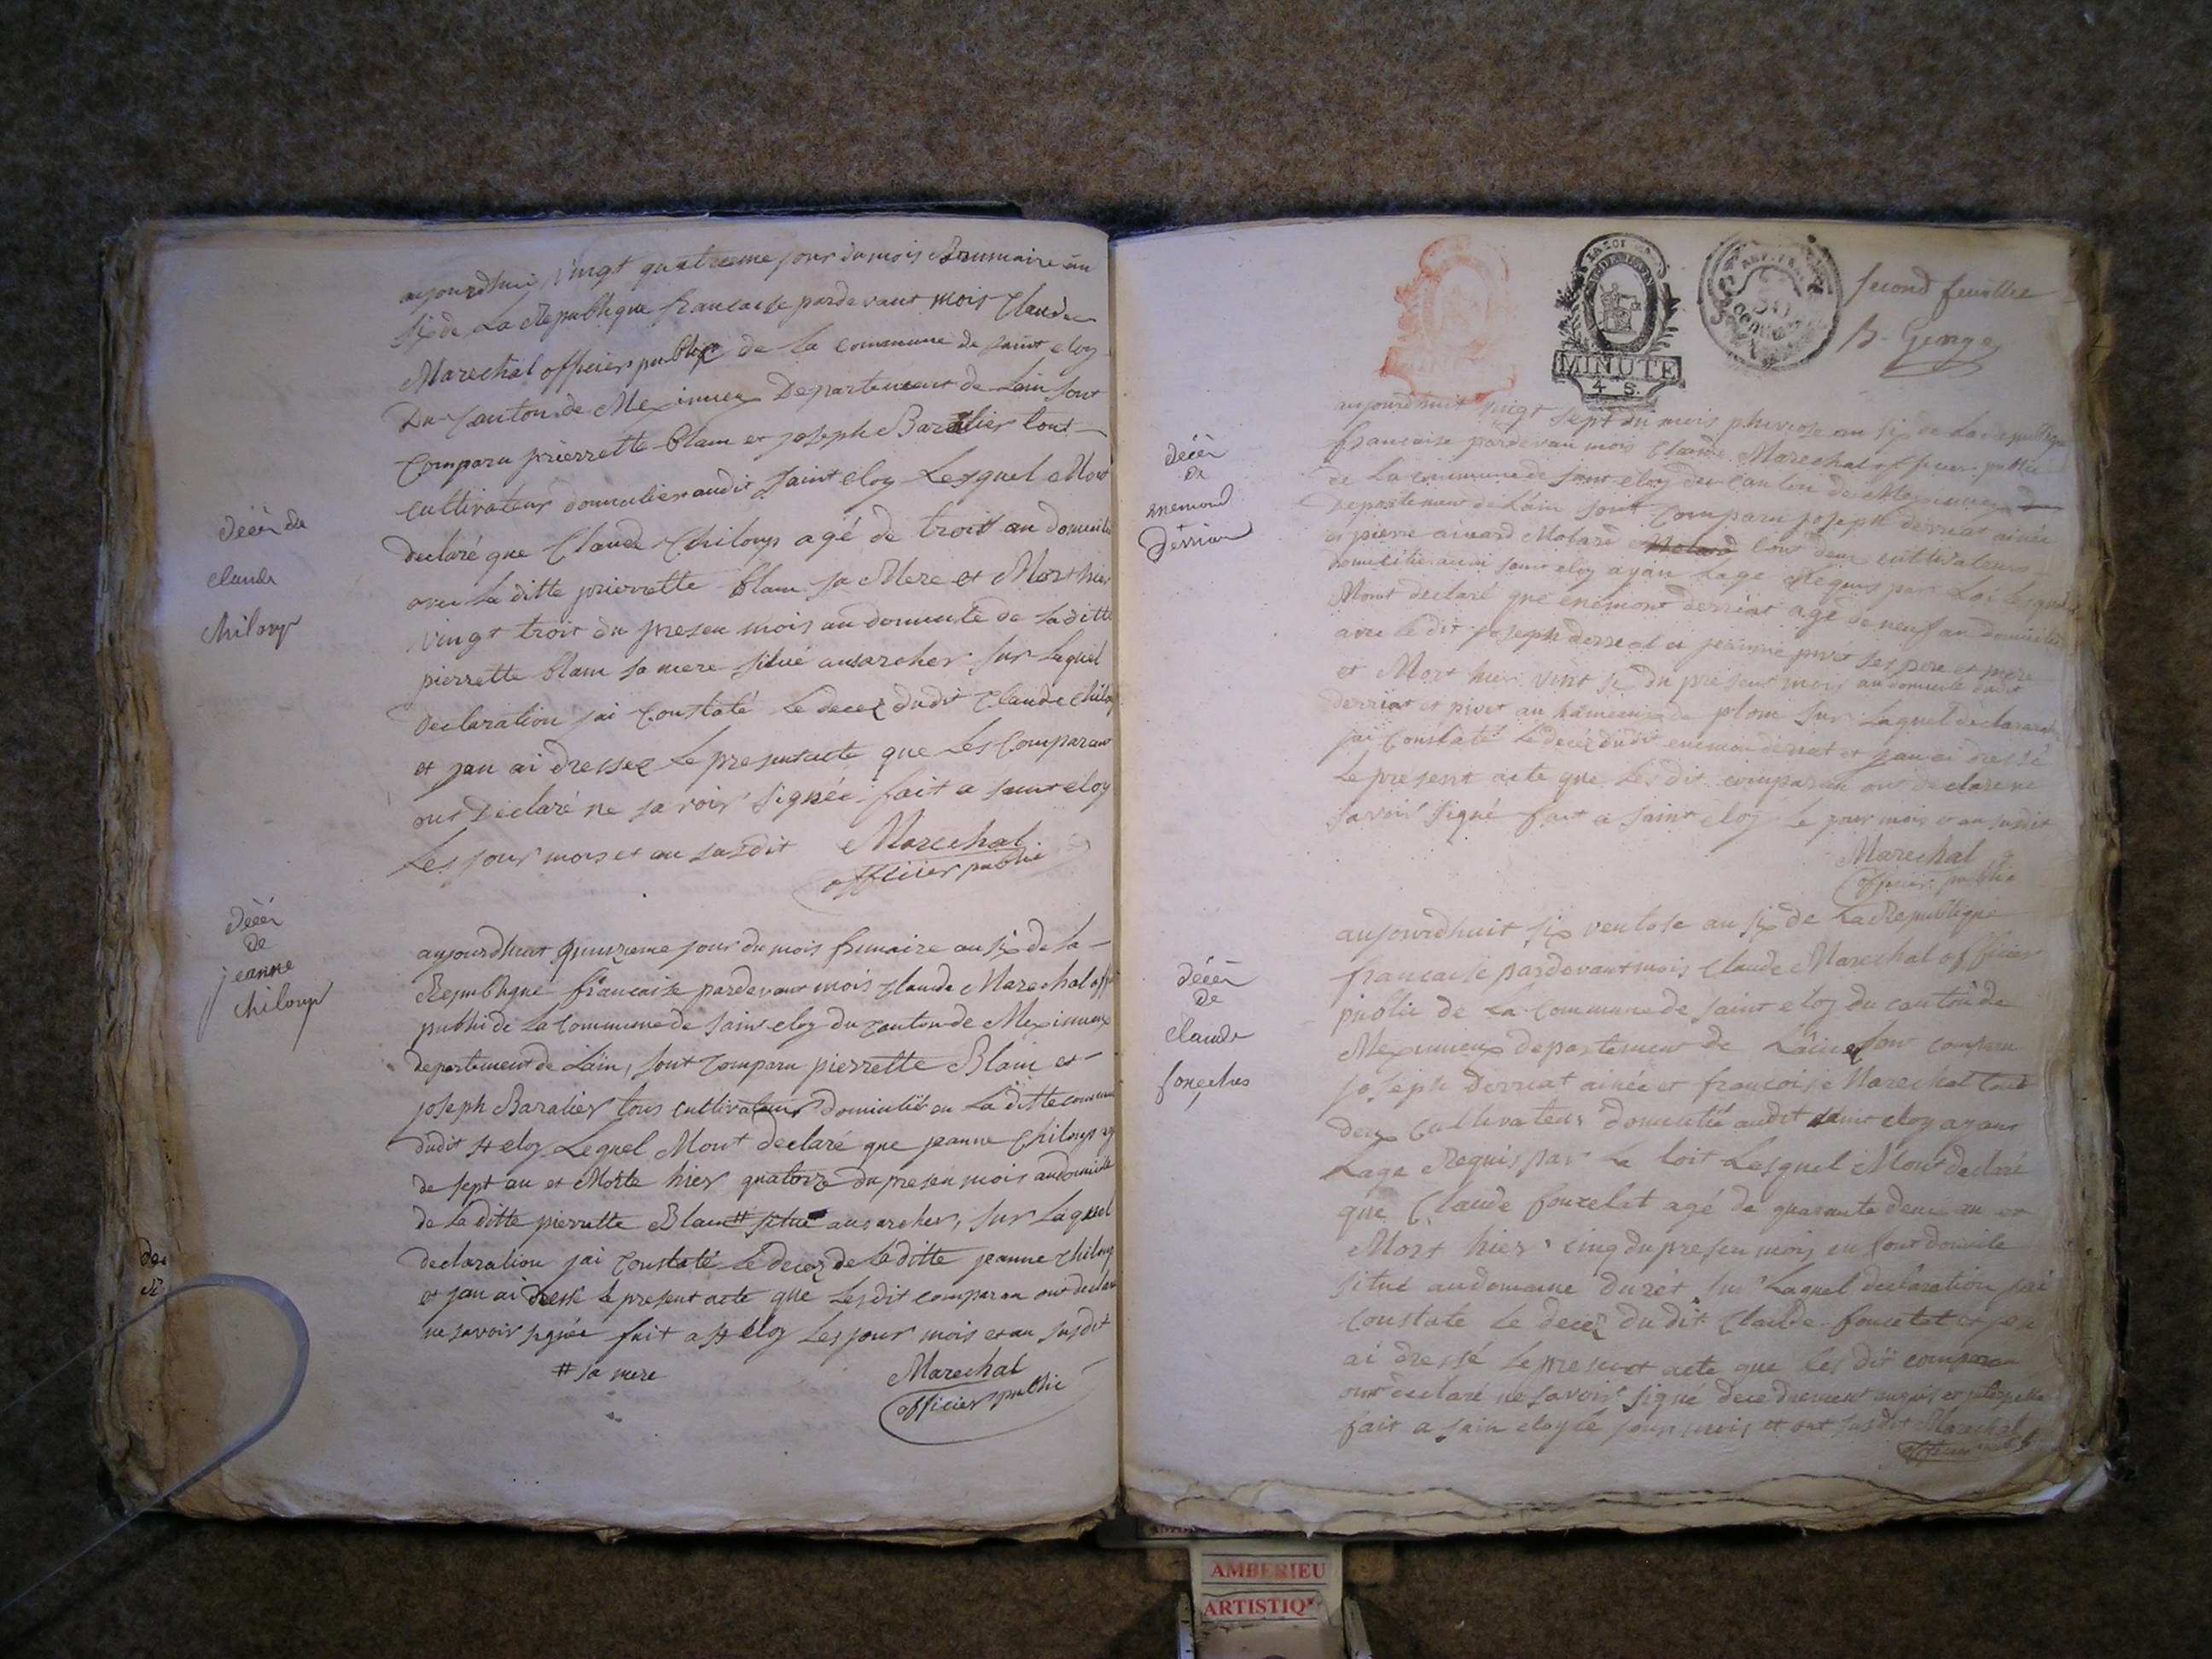 aujourdhui vingt quatrieme jour du mois Brumaire an
six de La Republique francaise pardevant mois Claude
Marechal officier public de la commune de saint eloy
Du Canton de Meximieux Departement de Lain sont
Comparu pierrette blain et joseph Baralier tout
cultivateur domicilier audit saint eloy Lesquel Mont
declaré que Claude Chiloup agé de troit an domicilié
avec La ditte pierrette blain sa Mere et Mort hier
vingt troit du presen mois au domicile de Laditte
pierrette blain sa mere situé ausarcher sur Laquel
Declaration jai Constaté Le decez dudit Claude Chiloup
et jan ai dressee Le present acte que Les Comparant
ont Declaré ne savoir signée fait a saint eloy
Les jour mois et an susdit Marechal
officier public
décèr du
claude
chiloup
décèr
de
jeanne
chiloup
aujourdhuit quinzieme jour du mois frimaire an six de La
Republique francaise pardevant mois Claude Marechal off
public de La Commune de saint eloy du canton de Meximieux
departement de Lain, sont Comparu pierrette Blain et
joseph Baralier tous cultivateur domicilié en La ditte commune
dudit st eloy Lequel Mont declaré que jeanne Chiloup ag
de sept an et Morte hier quatorze du presen mois audomicile
de La ditte pierrette Blain # situé ausarcher, sur Laquel
declaration jai Constaté Le decez de Laditte jeanne Chiloup
et jan ai dressé le present acte que Lesdit comparan ont declaré
ne savoir signée fait a st eloy Les jour mois et an susdit
# sa mere
Marechal
officier public
LA LOI
MINUTE
4 S.
REP. FRA
50
CENT
second feuillee
B. George
décèr
de
enemond
Derriat
aujourdhuit vingt sept du mois pluviose an six de La Republique
francaise pardevan mois Claude Marechal officier public
de La commune de saint eloy du canton de Meximieux
Departement de Lain sont Comparu joseph derriat ainée
et pierre ainard Molard Molard tout deux cultivateur
domicilié audit saint eloy ayan Lage Requis par La Loi Lesquel
Mont declaré que enemont derriat agé de neuf an domicilié
avec Le dit joseph derriat et jeanne pivet ses pere et mere
et Mort hier vint six du present mois au domicile dudit
derriat et pivet au hameau de plom sur Laquel declaration
jai Constaté Le decez dudit enemon derriat et jan ai dressé
Le present acte que Lesdit comparan ont declare ne
savoir signé fait a saint eloy Le jour mois et an susdit
Marechal
officier public
décèr
de
claude
aujourdhuit six ventose an six de La Republique
francaise pardevant mois Claude Marechal officier
public de La Commune de saint eloy du canton de
Meximieux departement de Lain sont comparu
joseph Derriat ainée et francoise Marechal tout
deux cultivateur domicilié audit saint eloy ayant
Lage Requis par La loit Lesquel Mont declaré
que Claude foucelat agé de quarante deux an et
Mort hier cinq du presen mois en sont domicile
situé audomaine Durét sur Laquel declaration jai
Constate Le decez dudit Claude foucetat et jan
ai dressé Le present acte que Les dit comparan
ont declaré ne savoir signé
fait a sain eloy Le jour mois et ant susdit Marechal
officier public
AMBERIEU
ARTISTIQ